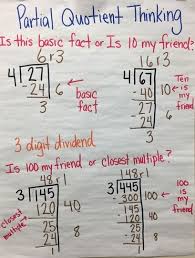 Partial Quotient Thinking
Is this basic fact or Is 10 my friend?
6 r3
4 27
-24 6
3
basic
fact
16 r3
4 67
-40 10
27
-24 6
3
Ten
is
my
friend
3 digit dividend
Is 100 my friend or closest multiple?
48 r1
3 145
-120 40
25
-24 8
1
closest
multiple
148 r1
3 445
-300 100
145
-120 40
25
-24 8
1
100
is my
friend